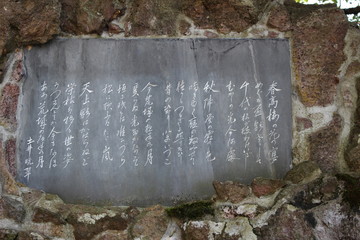 春高楼の花の宴
めぐる盃影さして
千代の松が枝わけ出でし
むかしの光今いづこ
秋陣営の霜の色
鳴き行く雁の数見せて
植うるつるぎに照りそひし
むかしの光今いづこ
今荒城の夜半の月
変らぬ光たがためぞ
垣に残るは唯かづら
松に歌ふはたゞ嵐
天上影は変らねど
栄枯は移る世の姿
うつさんとてか今も尚
あゝ荒城の夜半の月
土井晩翠